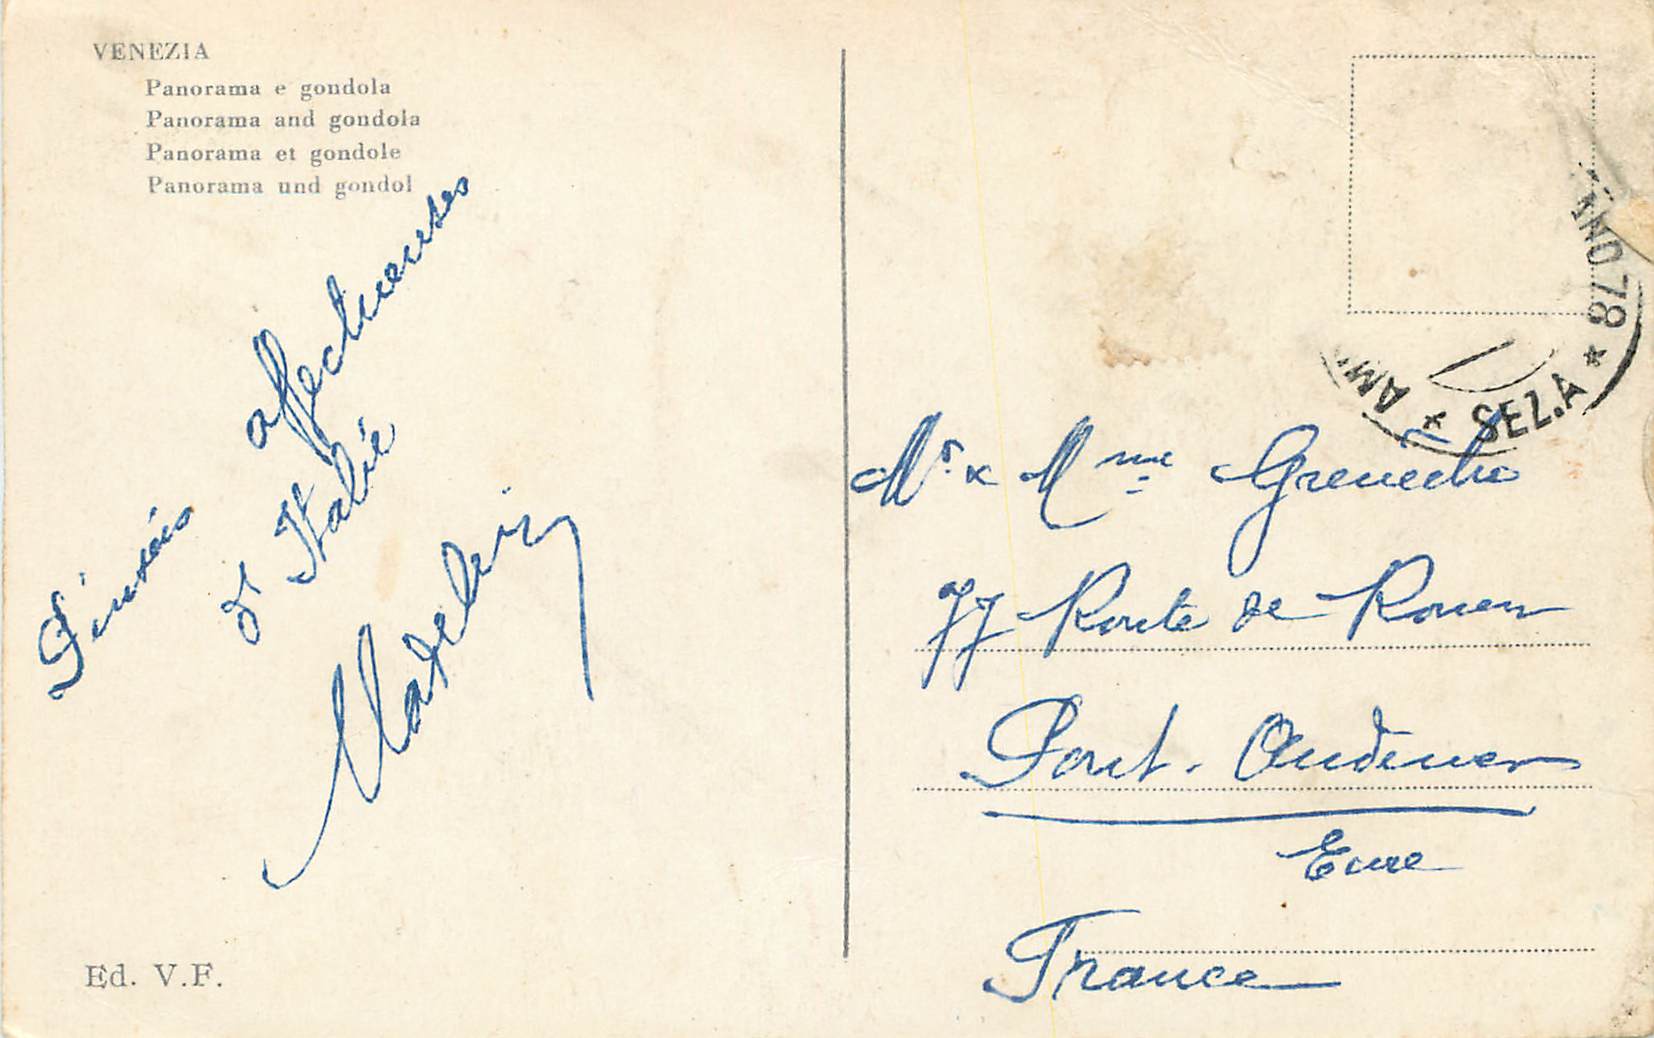 VENEZIA
Panorama e gondola
Panorama and gondola
Panorama et gondole
Panorama und gondol
Pensées affectueuses
d'Italie
Madeleine
Ed. V.F.
SEZ.A
Mr & Mme
77 Route de Rouen
Pont. Audemer
Eure
France